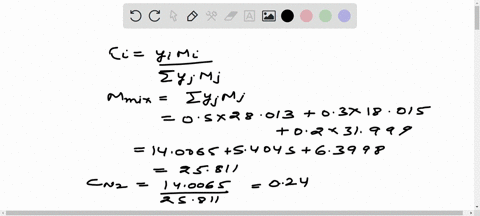 Ci = yi Mi
Σ yj Mj
Mmix = Σ yj Mj
= 0.5×28.013 + 0.3×18.015
+ 0.2×31.999
= 14.0065 + 5.4045 + 6.3998
= 25.811
CN2 = 14.0065 = 0.24
25.811